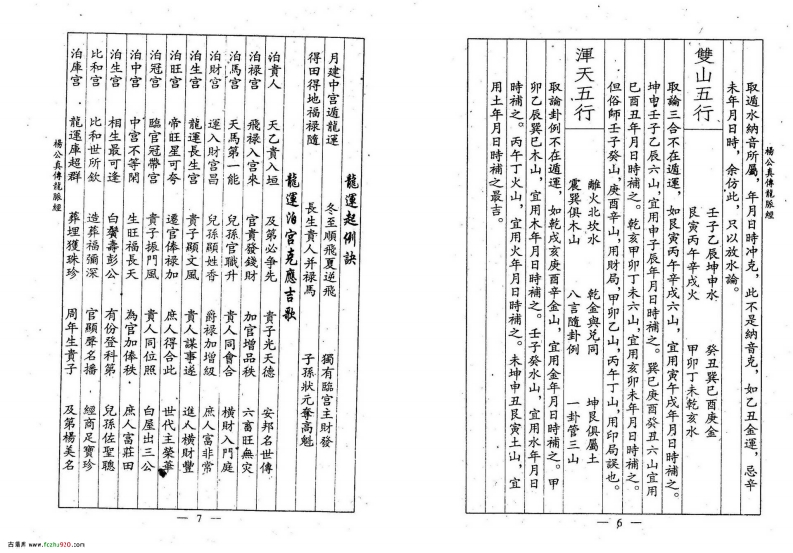 楊公真傳龍脈經
取遁水納音所屬，年月日時冲克，此不是納音克，如乙丑金運，忌辛
未年月日時，余仿此，只以放水論。
雙山五行
壬子乙辰坤申水　癸丑巽巳酉庚金
艮寅丙午辛戌火　甲卯丁未乾亥水
取論三合不在遁運，如艮寅丙午辛戌六山，宜用寅午戌年月日時補之。
坤申壬子乙辰六山，宜用申子辰年月日時補之。巽巳庚酉癸丑六山宜用
巳酉丑年月日時補之。乾亥甲卯丁未六山，宜用亥卯未年月日時補之。
但俗師壬子癸山，庚酉辛山，用財局，甲卯乙山，丙午丁山，用印局誤也。
渾天五行
離火北坎水　乾金與兌同　坤艮俱屬土
震巽俱木山　八言隨卦例　一卦管三山
取論卦例不在遁運，如乾戌亥庚酉辛金山，宜用金年月日時補之。甲
卯乙辰巽巳木山，宜用木年月日時補之。壬子癸水山，宜用水年月日
時補之。丙午丁火山，宜用火年月日時補之。未坤申丑艮寅土山，宜
用土年月日時補之最吉。
— 6 —
龍運起例訣
月建中宮遁龍運　冬至順飛夏逆飛　獨有臨宮主財發
得田得地福祿隨　長生貴人并祿馬　子孫狀元奪高魁
龍運泊宮克應吉歌
泊貴人　天乙貴人入垣　及第必爭先　貴子光天德　安邦名世傳
泊祿宮　飛祿入宮來　官貴發錢財　加官增品秩　六畜旺無災
泊馬宮　天馬第一能　兒孫官職升　貴人同會合　橫財入門庭
泊財宮　運入財宮昌　兒孫顯姓香　爵祿加增級　庶人富非常
泊生宮　龍運長生宮　貴子顯文風　貴人謀事遂　進人橫財豐
泊旺宮　帝旺星可夸　遷官俸祿加　庶人得合此　世代主榮華
泊冠宮　臨官冠帶宮　貴子振門風　貴人同位照　白屋出三公
泊中宮　中宮不等閑　生旺福長天　為官加俸秩．　庶人富莊田
泊生宮　相生最可逢　白鬢壽彭公　有份登科第　兒孫佐聖聰
比和宮　比和世所欽　造葬福彌深　官顯聲名播　經商足寶珍
泊庫宮　龍運庫超群　葬埋獲珠珍　周年生貴子　及第楊美名
楊公真傳龍脈經
— 7 —
古籍库 www.fczhu920.com